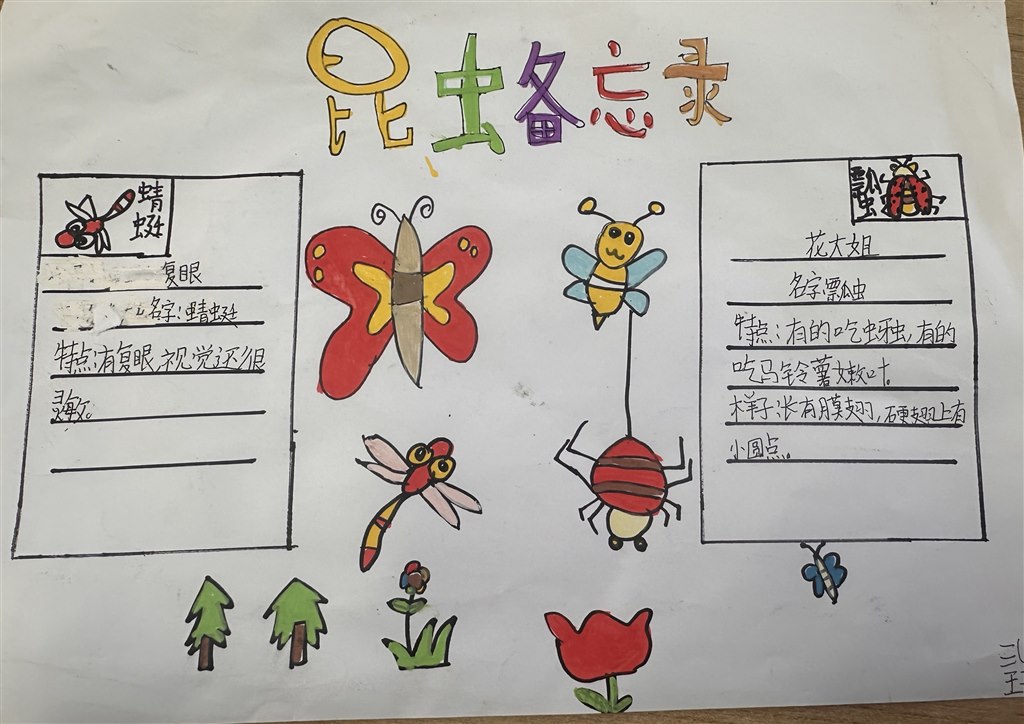 昆虫备忘录
蜻蜓
复眼
名字:蜻蜓
特点:有复眼,视觉还很
灵敏。
瓢虫
花大姐
名字瓢虫
特点:有的吃蚜虫,有的
吃马铃薯嫩叶。
样子:长有膜翅,硬翅上有
小圆点。